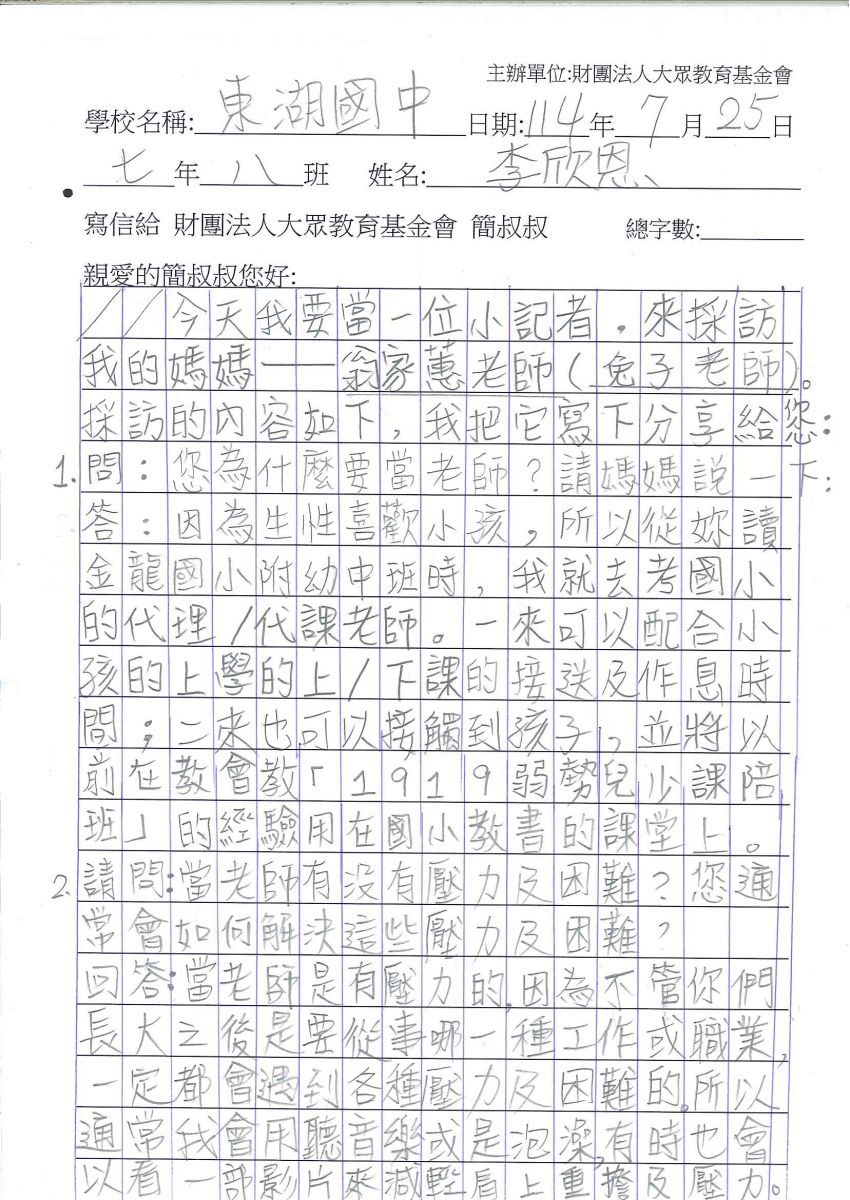 主辦單位:財團法人大眾教育基金會
學校名稱:東湖國中 日期:114年7月25日
七年八班 姓名:李欣恩
寫信給 財團法人大眾教育基金會 簡叔叔 總字數:
親愛的簡叔叔您好:
//今天我要當一位小記者.來採訪
我的媽媽——翁家蕙老師(兔子老師)。
採訪的內容如下,我把它寫下分享給您:
1.問:您為什麼要當老師?請媽媽說一下:
答:因為生性喜歡小孩,所以從妳讀
金龍國小附幼中班時,我就去考國小
的代理/代課老師。一來可以配合小
孩的上學的上/下課的接送及作息時
間;二來也可以接觸到孩子,並將以
前在教會教「1919弱勢兒少課陪
班」的經驗用在國小教書的課堂上。
2.請問:當老師有沒有壓力及困難?您通
常會如何解決這些壓力及困難?
回答:當老師是有壓力的,因為不管你們
長大之後是要從事哪一種工作或職業,
一定都會遇到各種壓力及困難的。所以
通常我會用聽音樂或是泡澡,有時也會
以看一部影片來減輕肩上重擔及壓力。